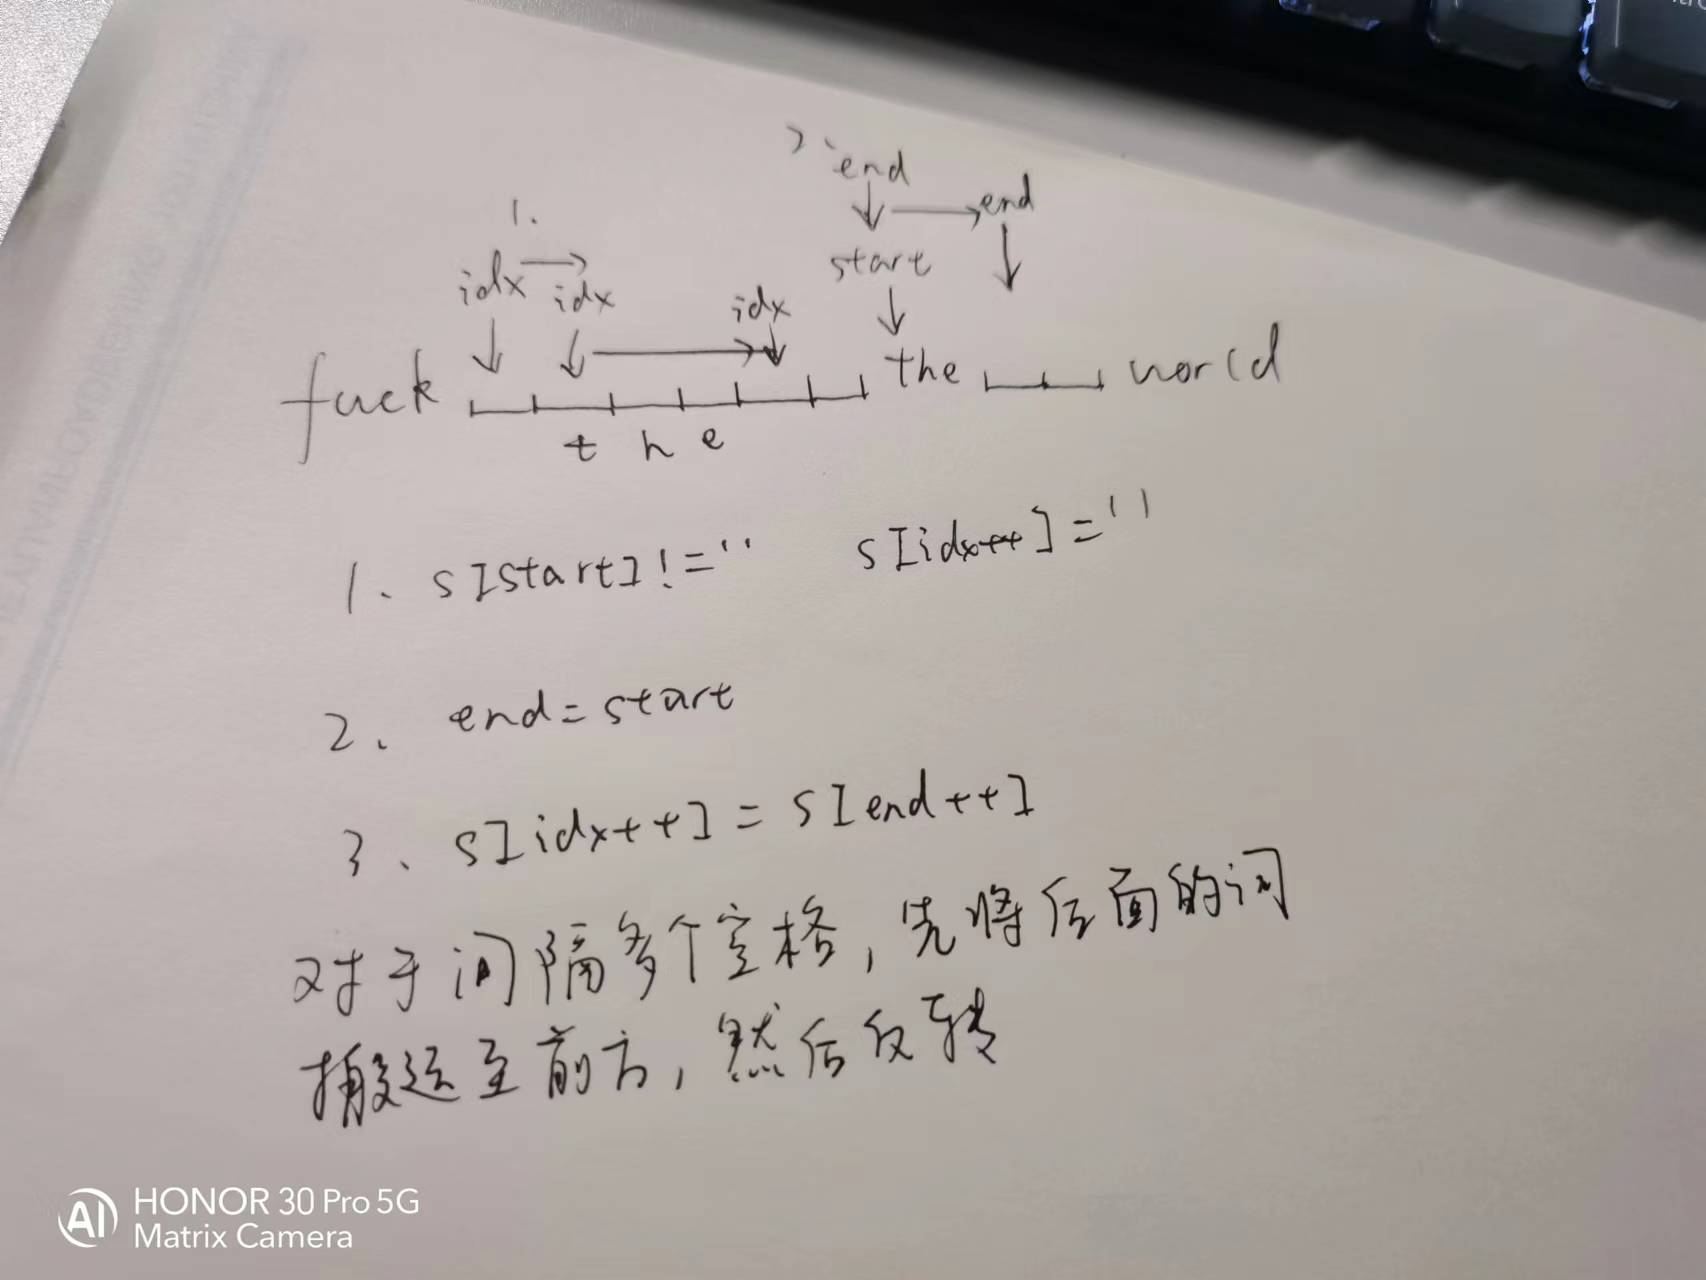 2、end
end
1.
start
idx idx idx
fuck the world
t h e
1、s[start]!=' ' s[idx++]=' '
2、end=start
3、s[idx++]=s[end++]
对于间隔多个空格，先将后面的词
搬运至前方，然后反转
HONOR 30 Pro 5G
AI Matrix Camera